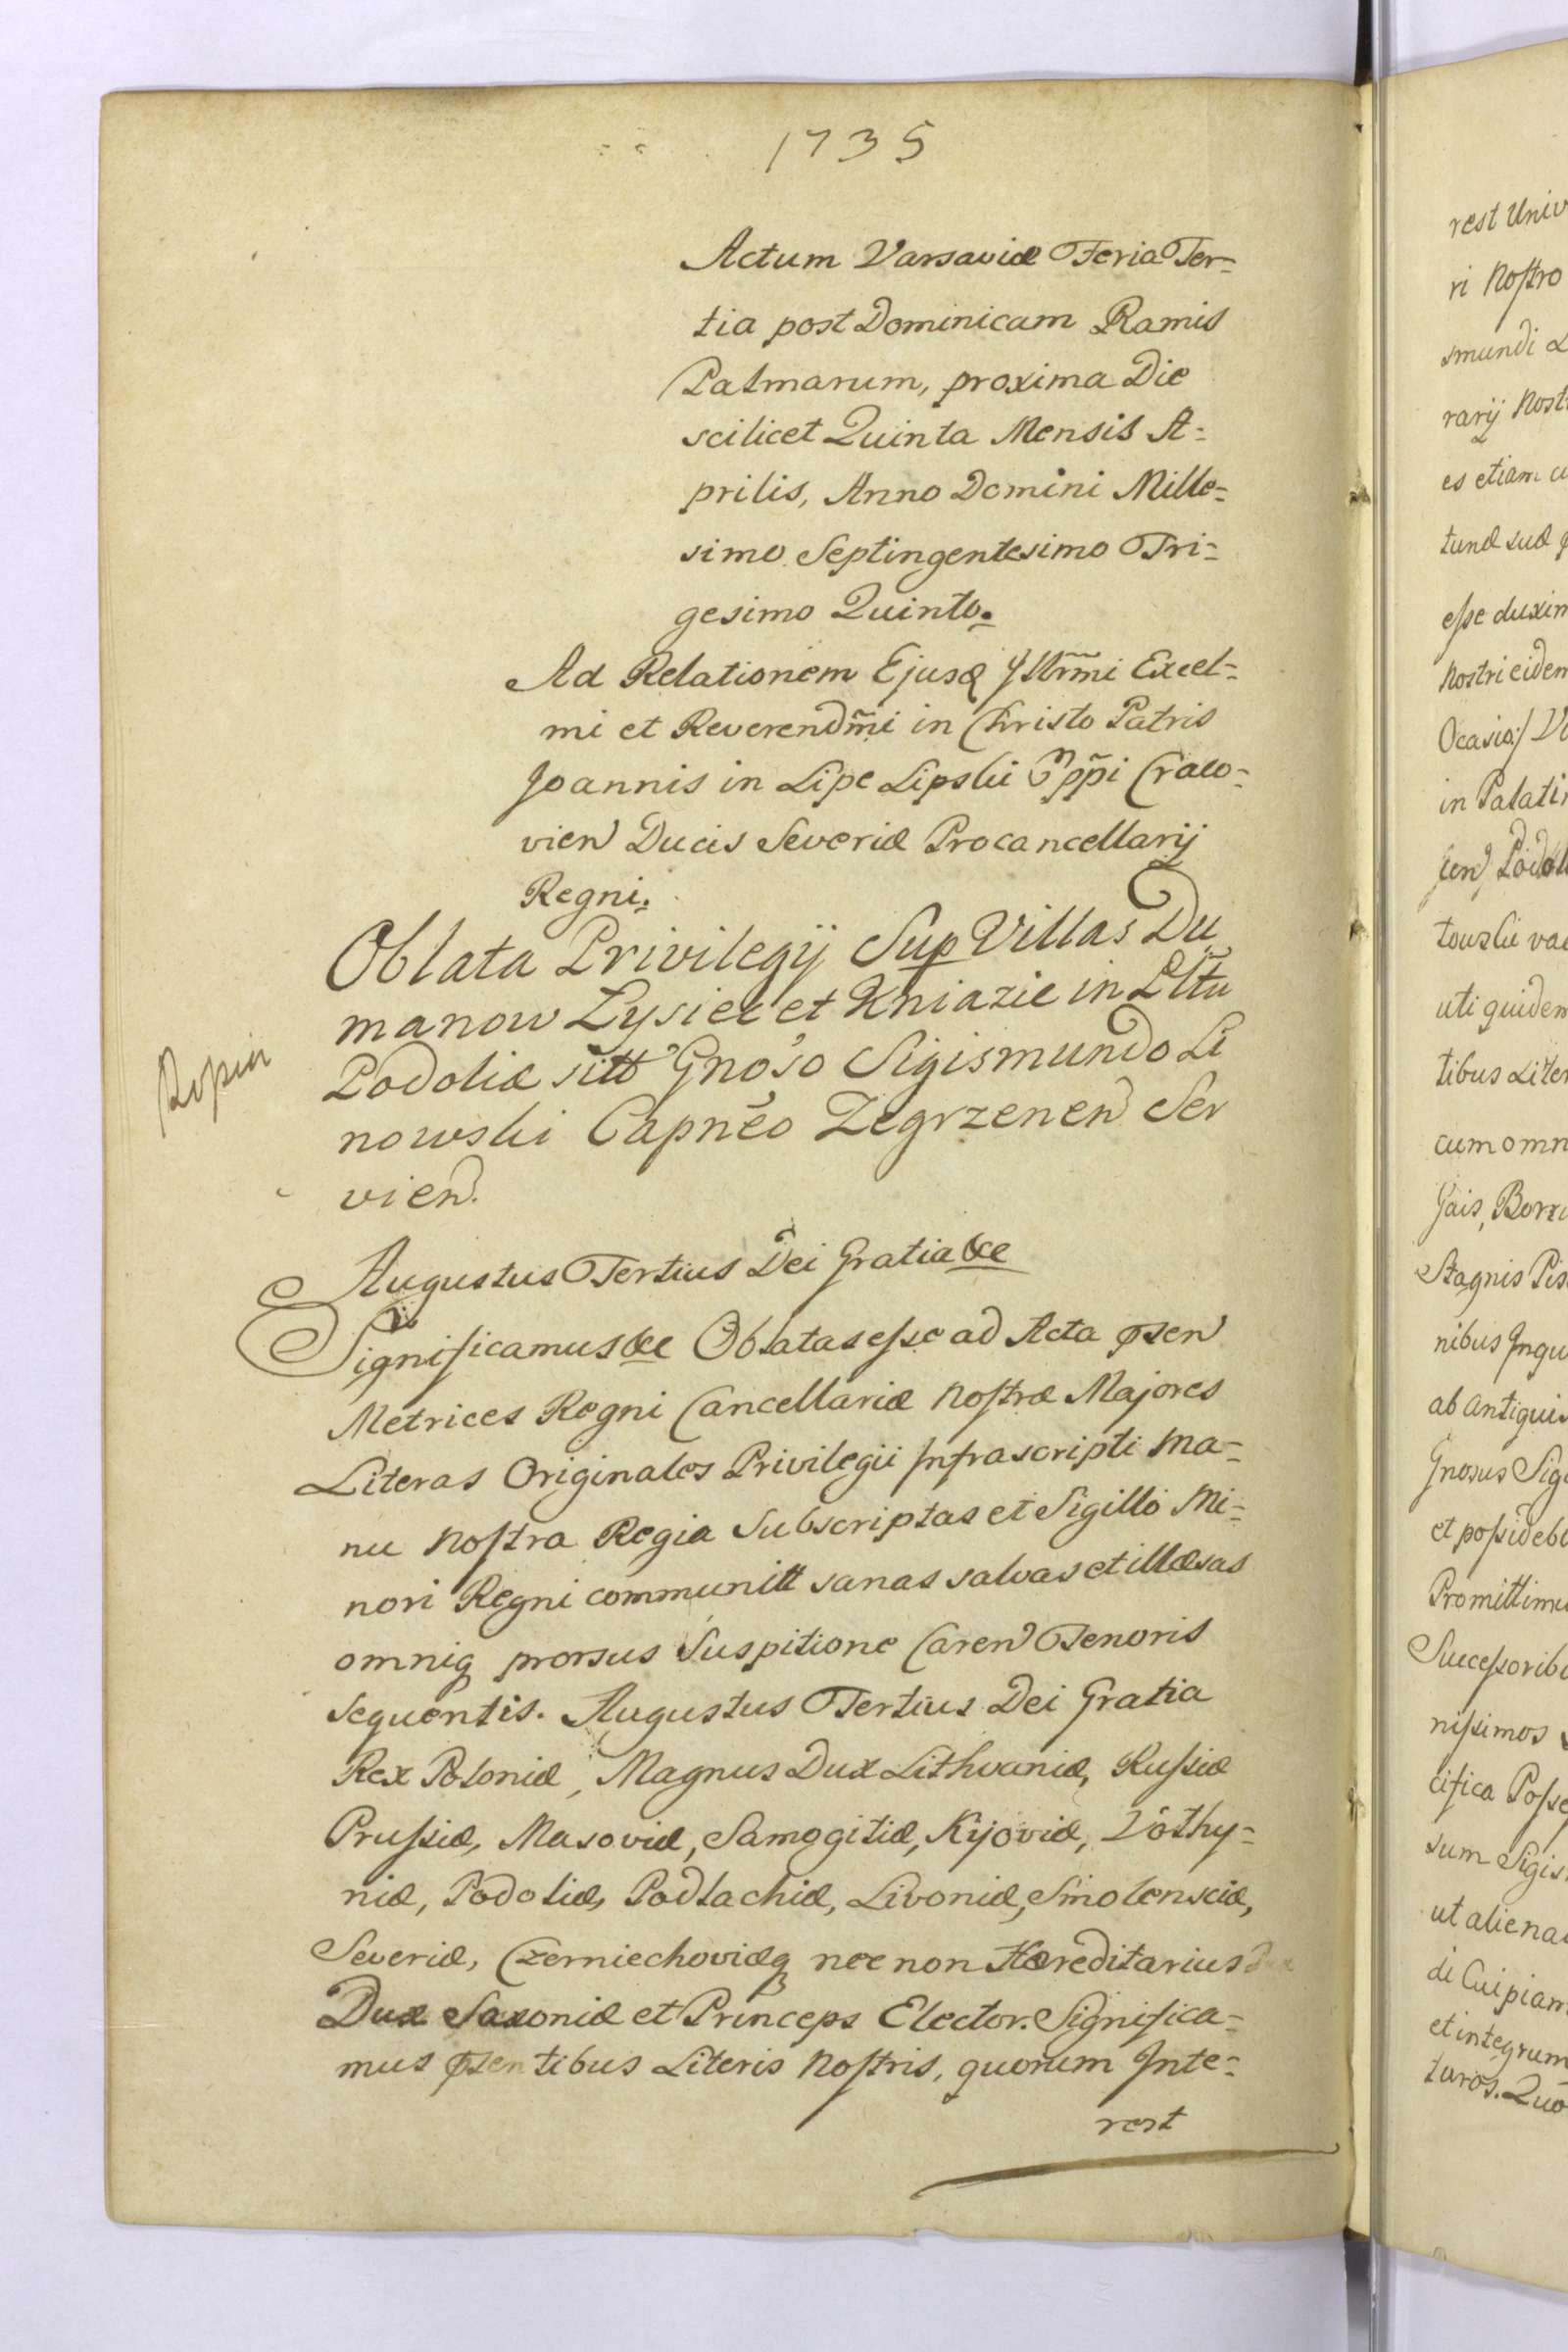 1735
Actum Varsaviæ Feria Ter=
tia post Dominicam Ramis
Palmarum, proxima Die
scilicet Quinta Mensis A=
prilis, Anno Domini Mille=
simo Septingentesimo Tri=
gesimo Quinto.
Ad Relationem Ejusq Illrm̃i Excel=
mi et Reverendm̃i in Christo Patris
Joannis in Lipe Lipski Eppĩ Craco=
vien Ducis Severiæ Procancellarij
Regni.
Oblata Privilegij Sup Villas Du
manow Lysiec et Kniazie in Plttu
Podoliæ sitt Gnoso Sigismundo Li
nowski Capnẽo Zegrzenen Ser
vien.
Augustus Tertius Dei Gratia &c
Significamus &c Oblatas eſse ad Acta pñsen
Metrices Regni Cancellariæ noſtræ Majores
Literas Originales Privilegii Infrascripti ma=
nu noſtra Regia Subscriptas et Sigillo Mi=
nori Regni communitt sanas salvas et illæsas
omniq prorsus Suspitione Caren Tenoris
sequentis. Augustus Tertius Dei Gratia
Rex Poloniæ, Magnus Dux Lithvaniæ, Ruſsiæ
Pruſsiæ, Masoviæ, Samogitiæ, Kijoviæ, Volhy=
niæ, Podoliæ, Podlachiæ, Livoniæ, Smolensciæ,
Severiæ, Czerniechoviæq nec non Hæreditarius
Dux Saxoniæ et Princeps Elector. Significa=
mus psentibus Literis noſtris, quorum Inte=
rest
rest Univ
ri noſtro
smundi L
rarij nost
es etiam cu
tunæ suæ
eſse duxim
nostri eidem
in Palati
towski va
uti quidem
tibus Liter
cum omn
Gais, Borri
Stagnis Pis
nibus Inqu
ab antiquis
Gnosus Sigi
et poſsideb
Promittimu
Succeſsorib
niſsimos
cifica Poſse
sum Sigis
ut aliena
di Cuipiam
et integrum
turos. Quo